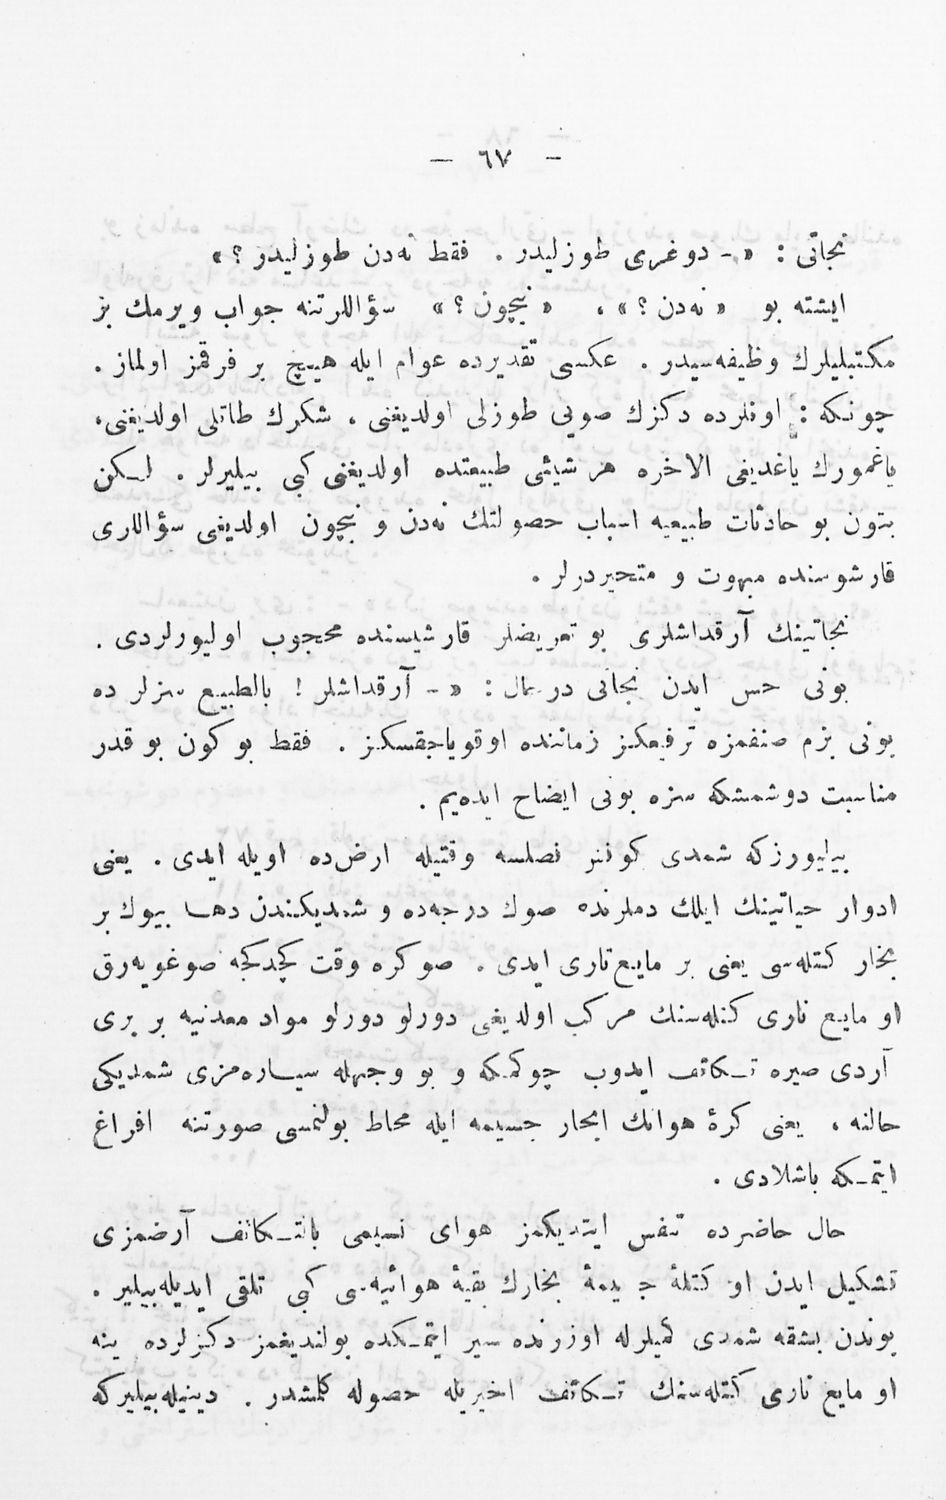 — ٦٧ —
نجاتی : « - دوغری طوزلیدر . فقط نه‌دن طوزلیدر ؟ »
ایشته بو « نه‌دن ؟ » ، « نیچون ؟ » سؤاللرتنه جواب ویرمك بز
مکتبلیلرك وظیفه‌سیدر . عکسی تقدیرده عوام ایله هیچ بر فرقمز اولماز .
چونکه : اونلرده دکزك صویی طوزلی اولدیغنی ، شکرك طاتلی اولدیغنی ،
یاغمورك یاغدیغی الاخره هر شیئی طبیعتده اولدیغی کبی بیلیرلر . لـکن
بتون بو حادثات طبیعیه اسباب حصولنك نه‌دن و نیچون اولدیغی سؤاللری
قارشوسنده مبهوت و متحیردرلر .
نجاتینك آرقداشلری بو تعریضلر قارشیسنده محجوب اولیورلردی .
بونی حس ایدن نجاتی درحال : « - آرقداشلر ! بالطبیع سزلر ده
بونی بزم صنفمزه ترفیعکز زماننده اوقویاجقسکز . فقط بو کون بو قدر
مناسبت دوشمشکه سزه بونی ایضاح ایده‌یم .
بیلیورزکه شمدی کونش نصلسه وقتیله ارض‌ده اویله ایدی . یعنی
ادوار حیاتینك ایلك دملرنده صوك درجه‌ده و شمدیکندن دها بیوك بر
بخار کتله‌سی یعنی بر مایع ناری ایدی . صوکره وقت کچدکجه صوغویه‌رق
او مایع ناری کتله‌سنك مرکب اولدیغی دورلو دورلو مواد معدنیه بر بری
آردی صیره تـکاثف ایدوب چوکمکه و بو وجهله سیاره‌مزی شمدیکی
حالنه ، یعنی کرهٔ هوانك ابحار جسیمه ایله محاط بولنمسی صورتنه افراغ
ایتمـکه باشلادی .
حال حاضرده تنفس ایتدیکمز هوای نسیمی بالتـکاثف آرضمزی
تشکیل ایدن او کتلهٔ جسیمهٔ بخارك بقیهٔ هوائیه‌سی کبی تلقی ایدیله‌بیلیر .
بوندن بشقه شمدی کمیلرله اوزرنده سیر ایتمـکده بولندیغمز دکزلرده ینه
او مایع ناری کتله‌سنك تـکاثف اخیریله حصوله کلشدر . دینیله‌بیلیرکه